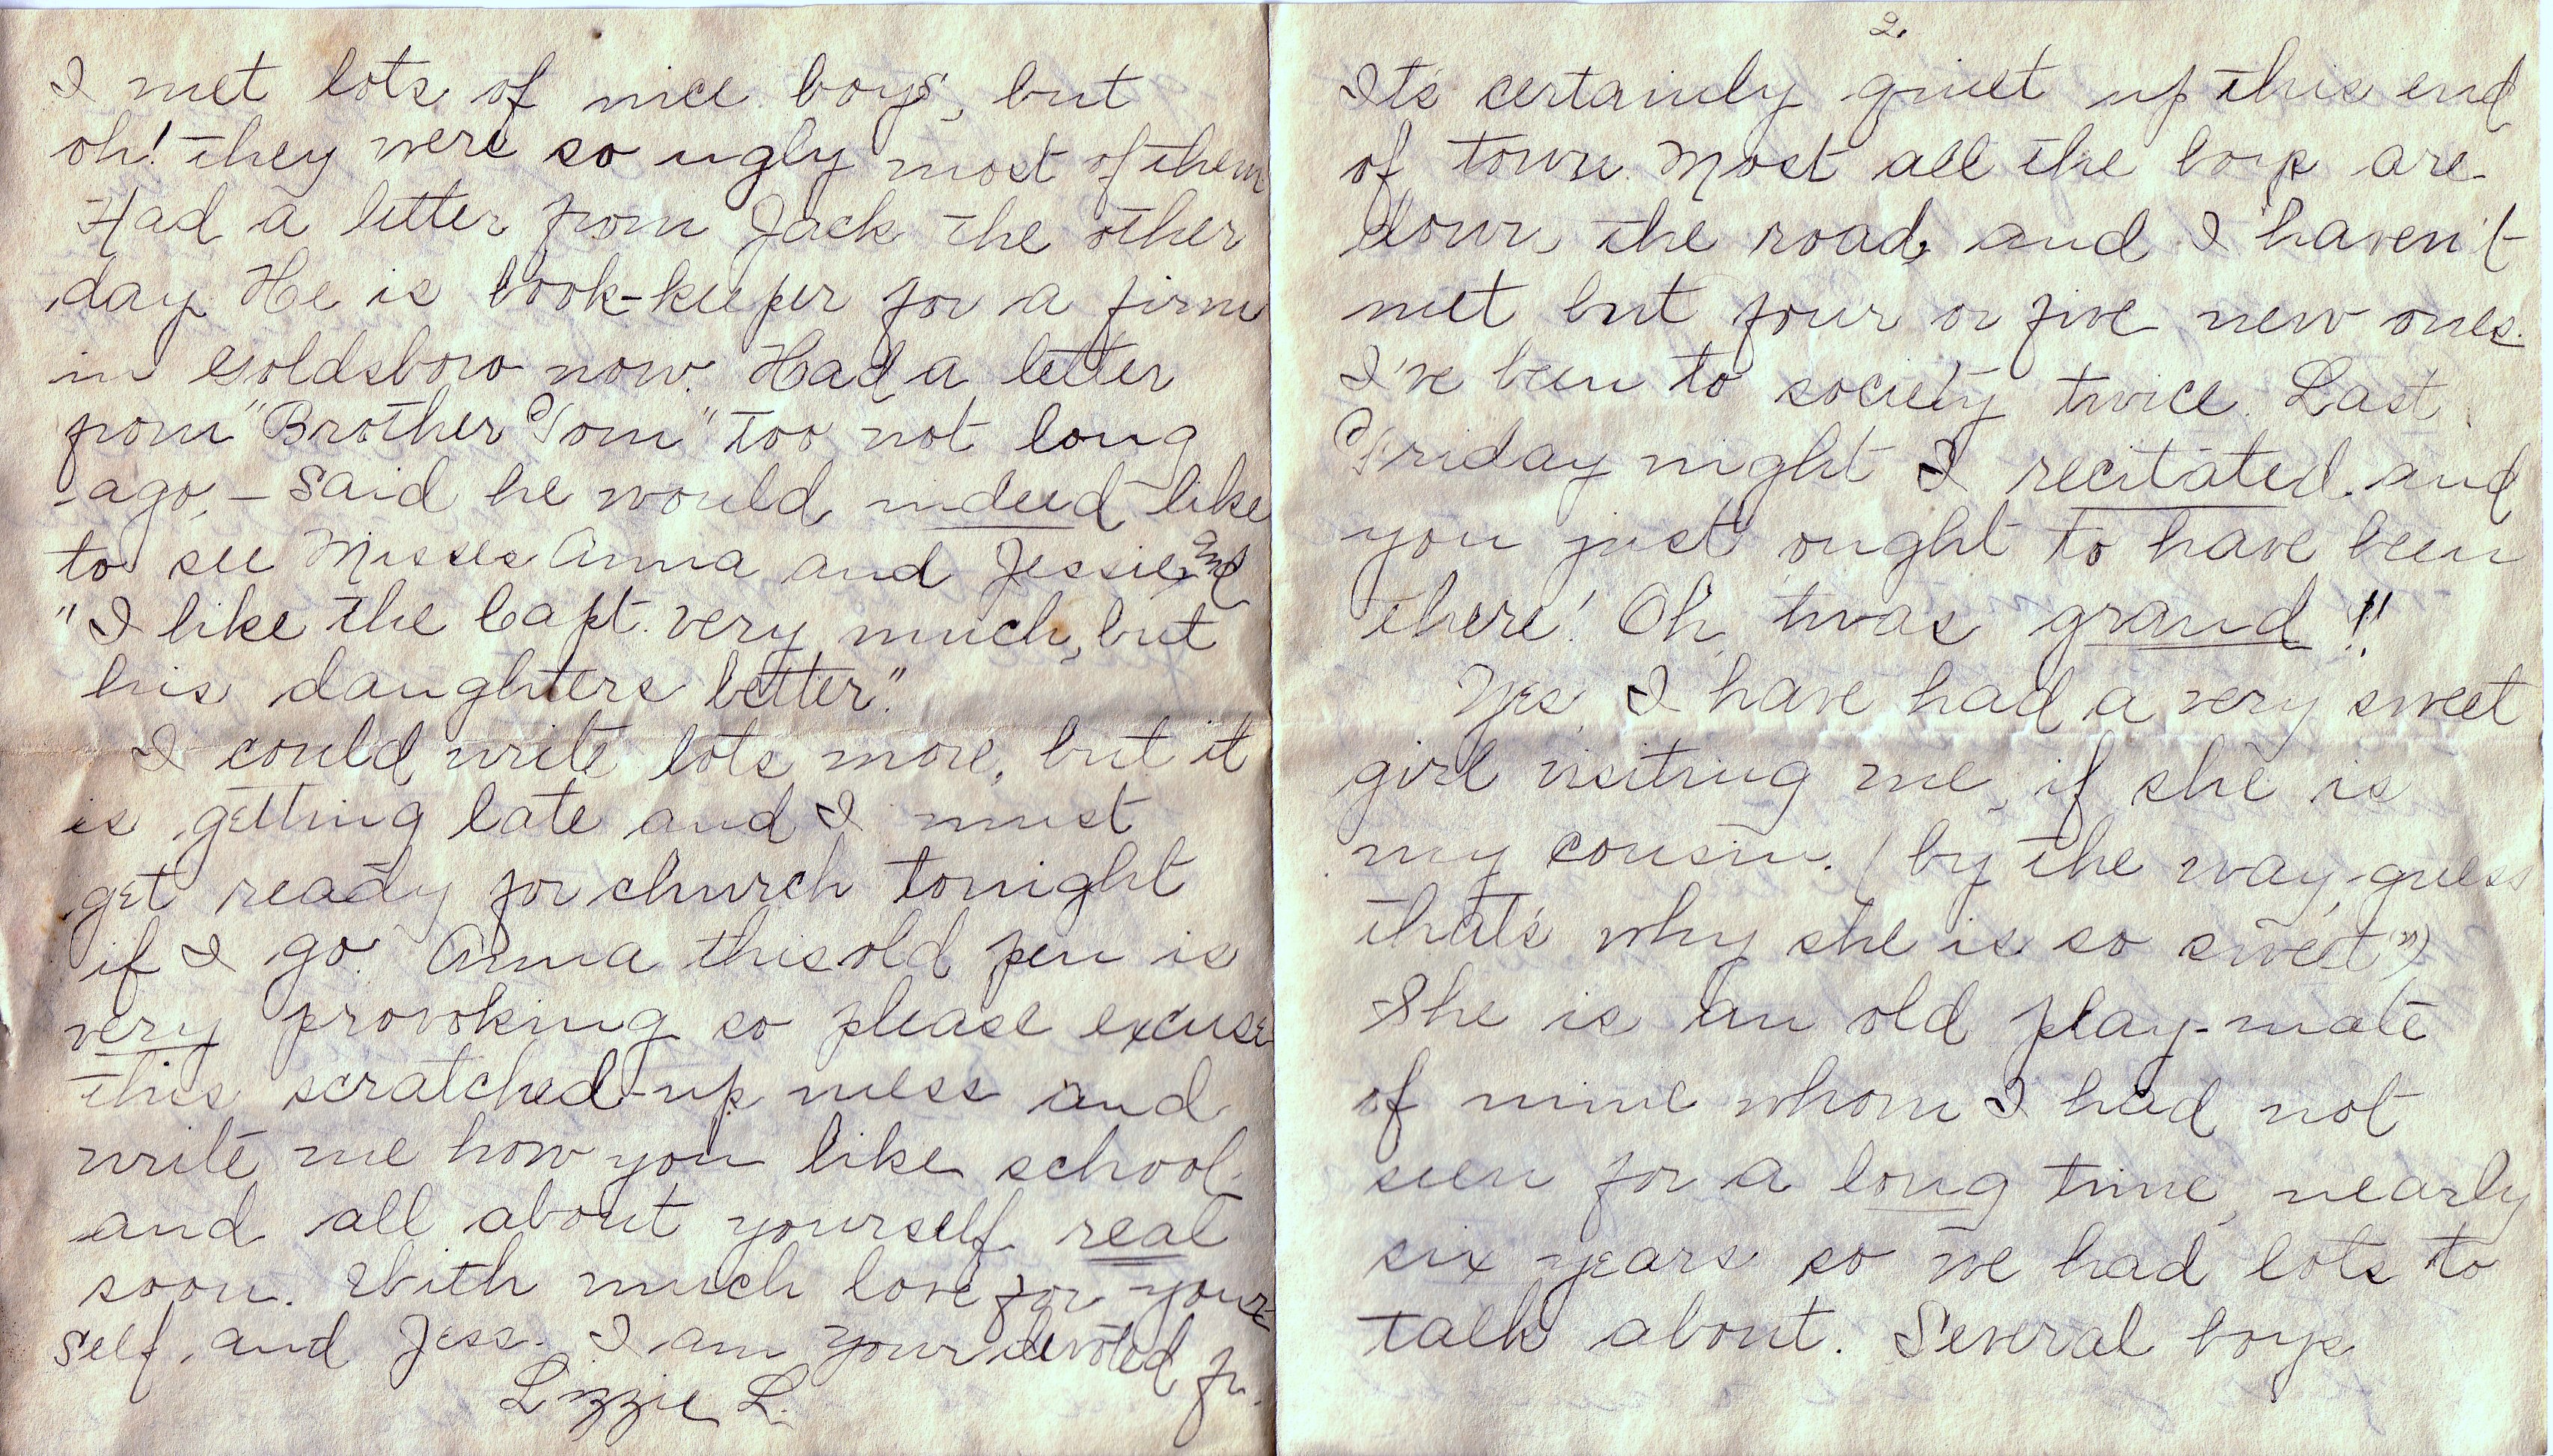 I met lots of nice boys, but
oh! they were so ugly most of them
Had a letter from Jack the other
day. He is book-keeper for a firm
in Goldsboro now. Had a letter
from "Brother Tom" too not long
ago, – said he would indeed like
to see Misses Anna and Jessie, and
"I like the Capt. very much, but
his daughters better."
I could write lots more, but it
is getting late and I must
get ready for church tonight
if I go. Anna this old pen is
very provoking so please excuse
this scratched-up mess and
write me how you like school
and all about yourself real
soon. With much love for your-
self, and Jess. I am your devoted fr.
Lizzie L.
2.
It's certainly quiet up this end
of town. Most all the boys are
down the road, and I haven't
met but four or five new ones.
I've been to society twice. Last
Friday night I recitated and
you just ought to have been
there! Oh, twas grand!!
Yes, I have had a very sweet
girl visiting me, if she is
my cousin. (by the way, guess
that's why she is so sweet")
She is an old play-mate
of mine whom I had not
seen for a long time, nearly
six years so we had lots to
talk about. Several boys